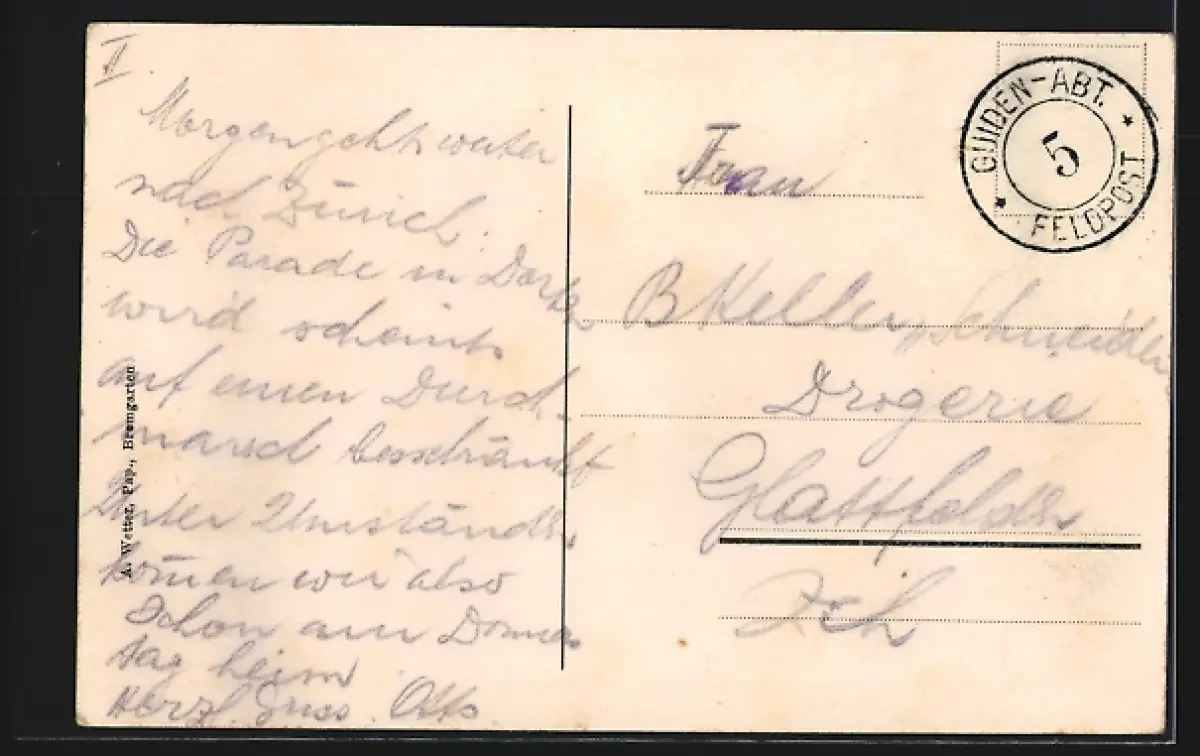 II.
Morgen geht weiter
nach Zürich.
Die Parade in
wird scheints
auf einen Durch-
marsch beschränkt
Unter Umständen
können wir also
schon am Donners
tag heim
Herzl. Gruss. Otto.
A. Wetter, Pap., Bremgarten
GUIDEN-ABT.
5
* FELDPOST *
Frau
B Keller, Schneider
Drogerie
Glattfelden
Zch